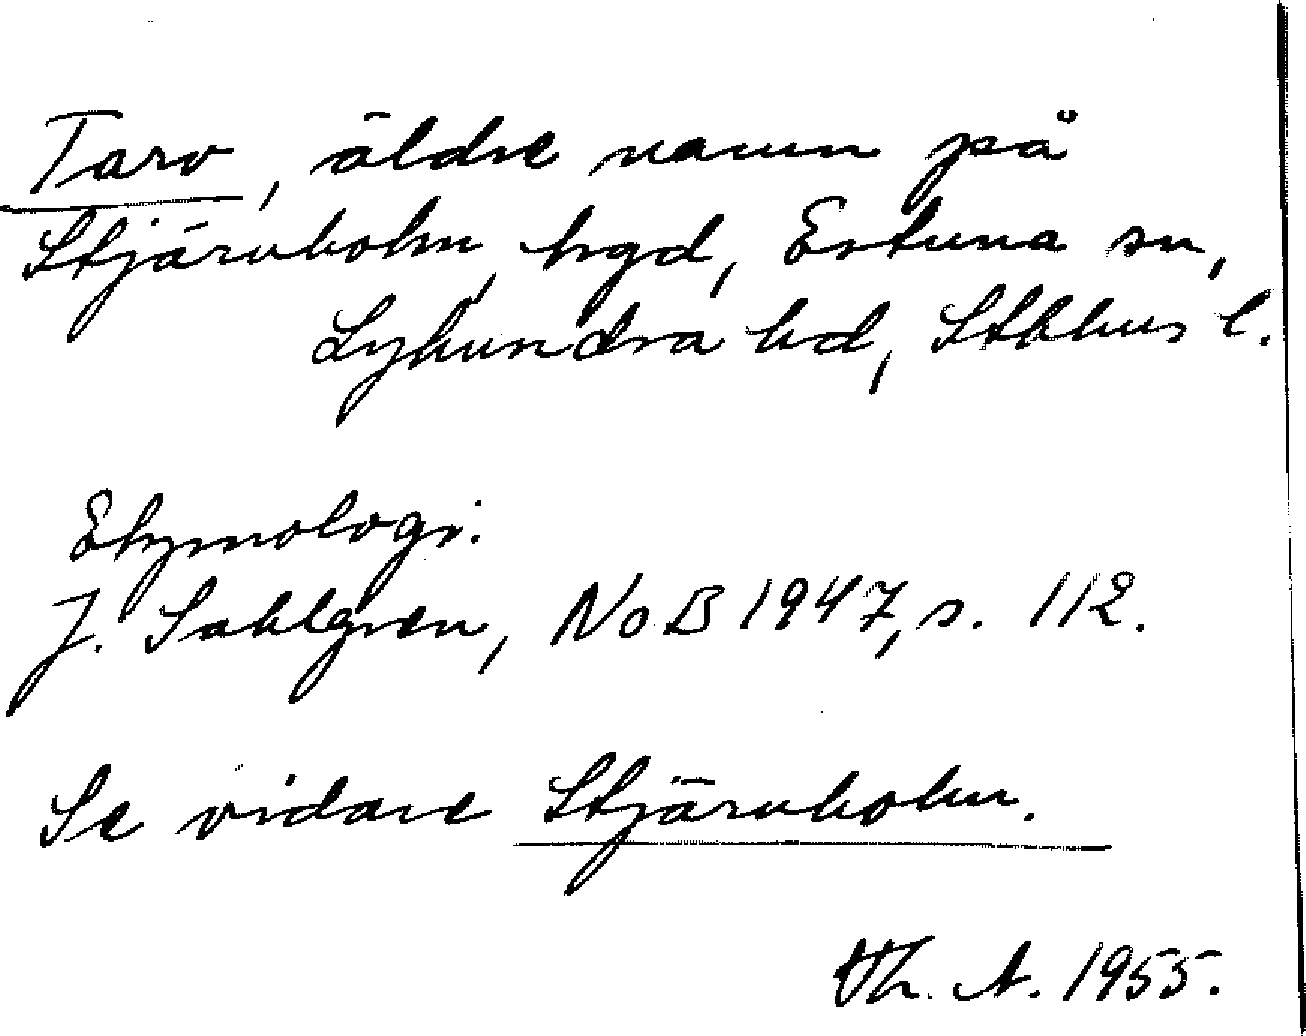 Tarv, äldre namn på
Stjärnholm, hgd, Estuna sn,
Lyhundra hd, Sthlms l.
Etymologi.
J. Sahlgren, NoB 1947, s. 112.
Se vidare Stjärnholm.
Th. A. 1955.